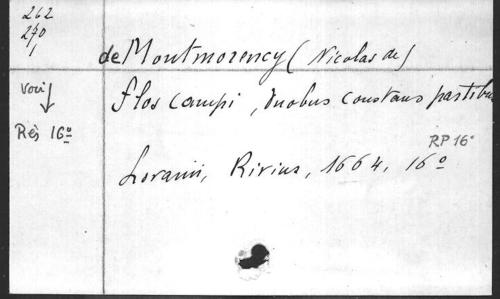 262
240
1
de Montmorency (Nicolas de)
Voir
Flos campi, duobus constans partibu
Rés 16º
RP 16º
Lovanii, Rivius, 1664, 16º